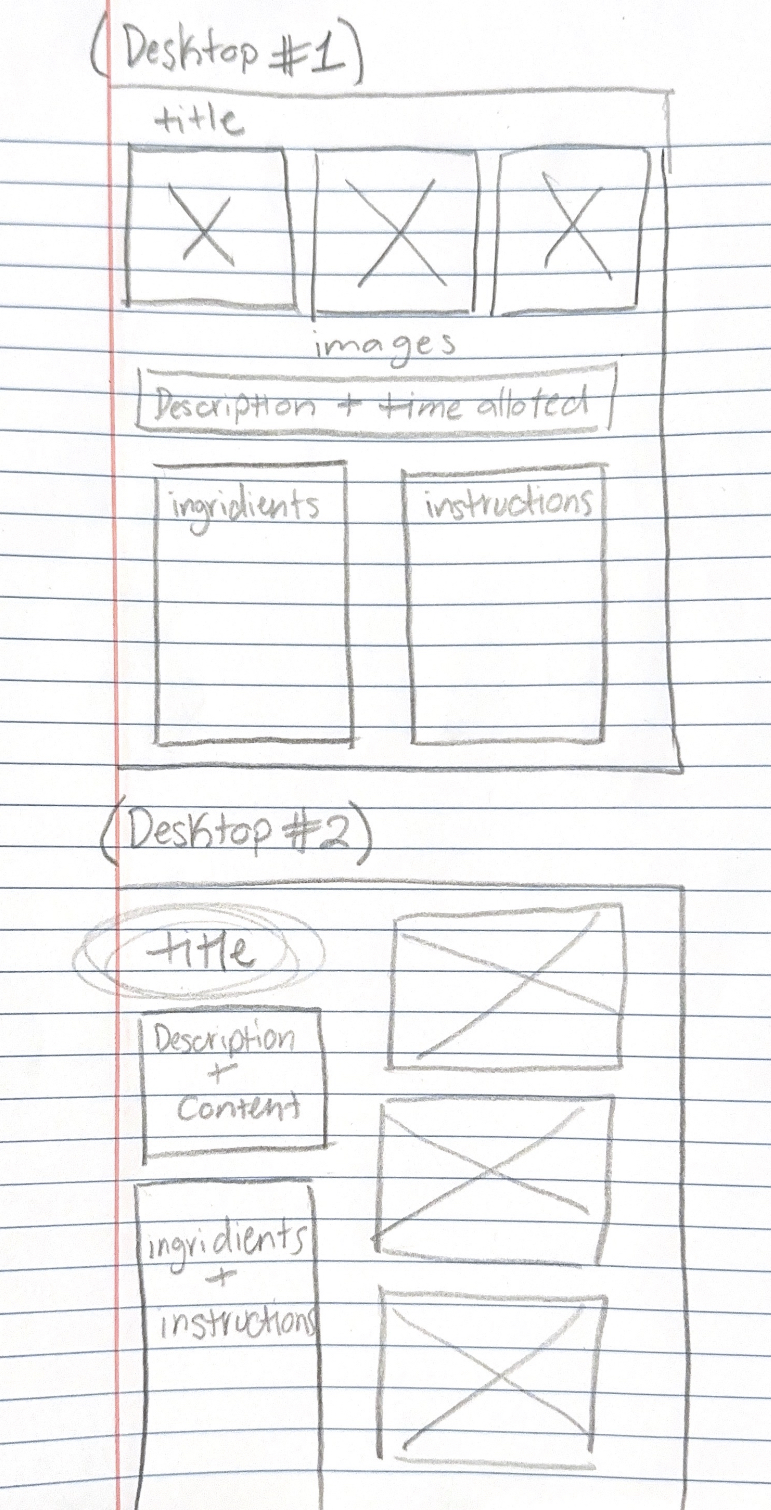 (Desktop #1)
title
images
Description + time alloted
ingridients
instructions
(Desktop #2)
title
Description
+
Content
ingridients
+
instructions